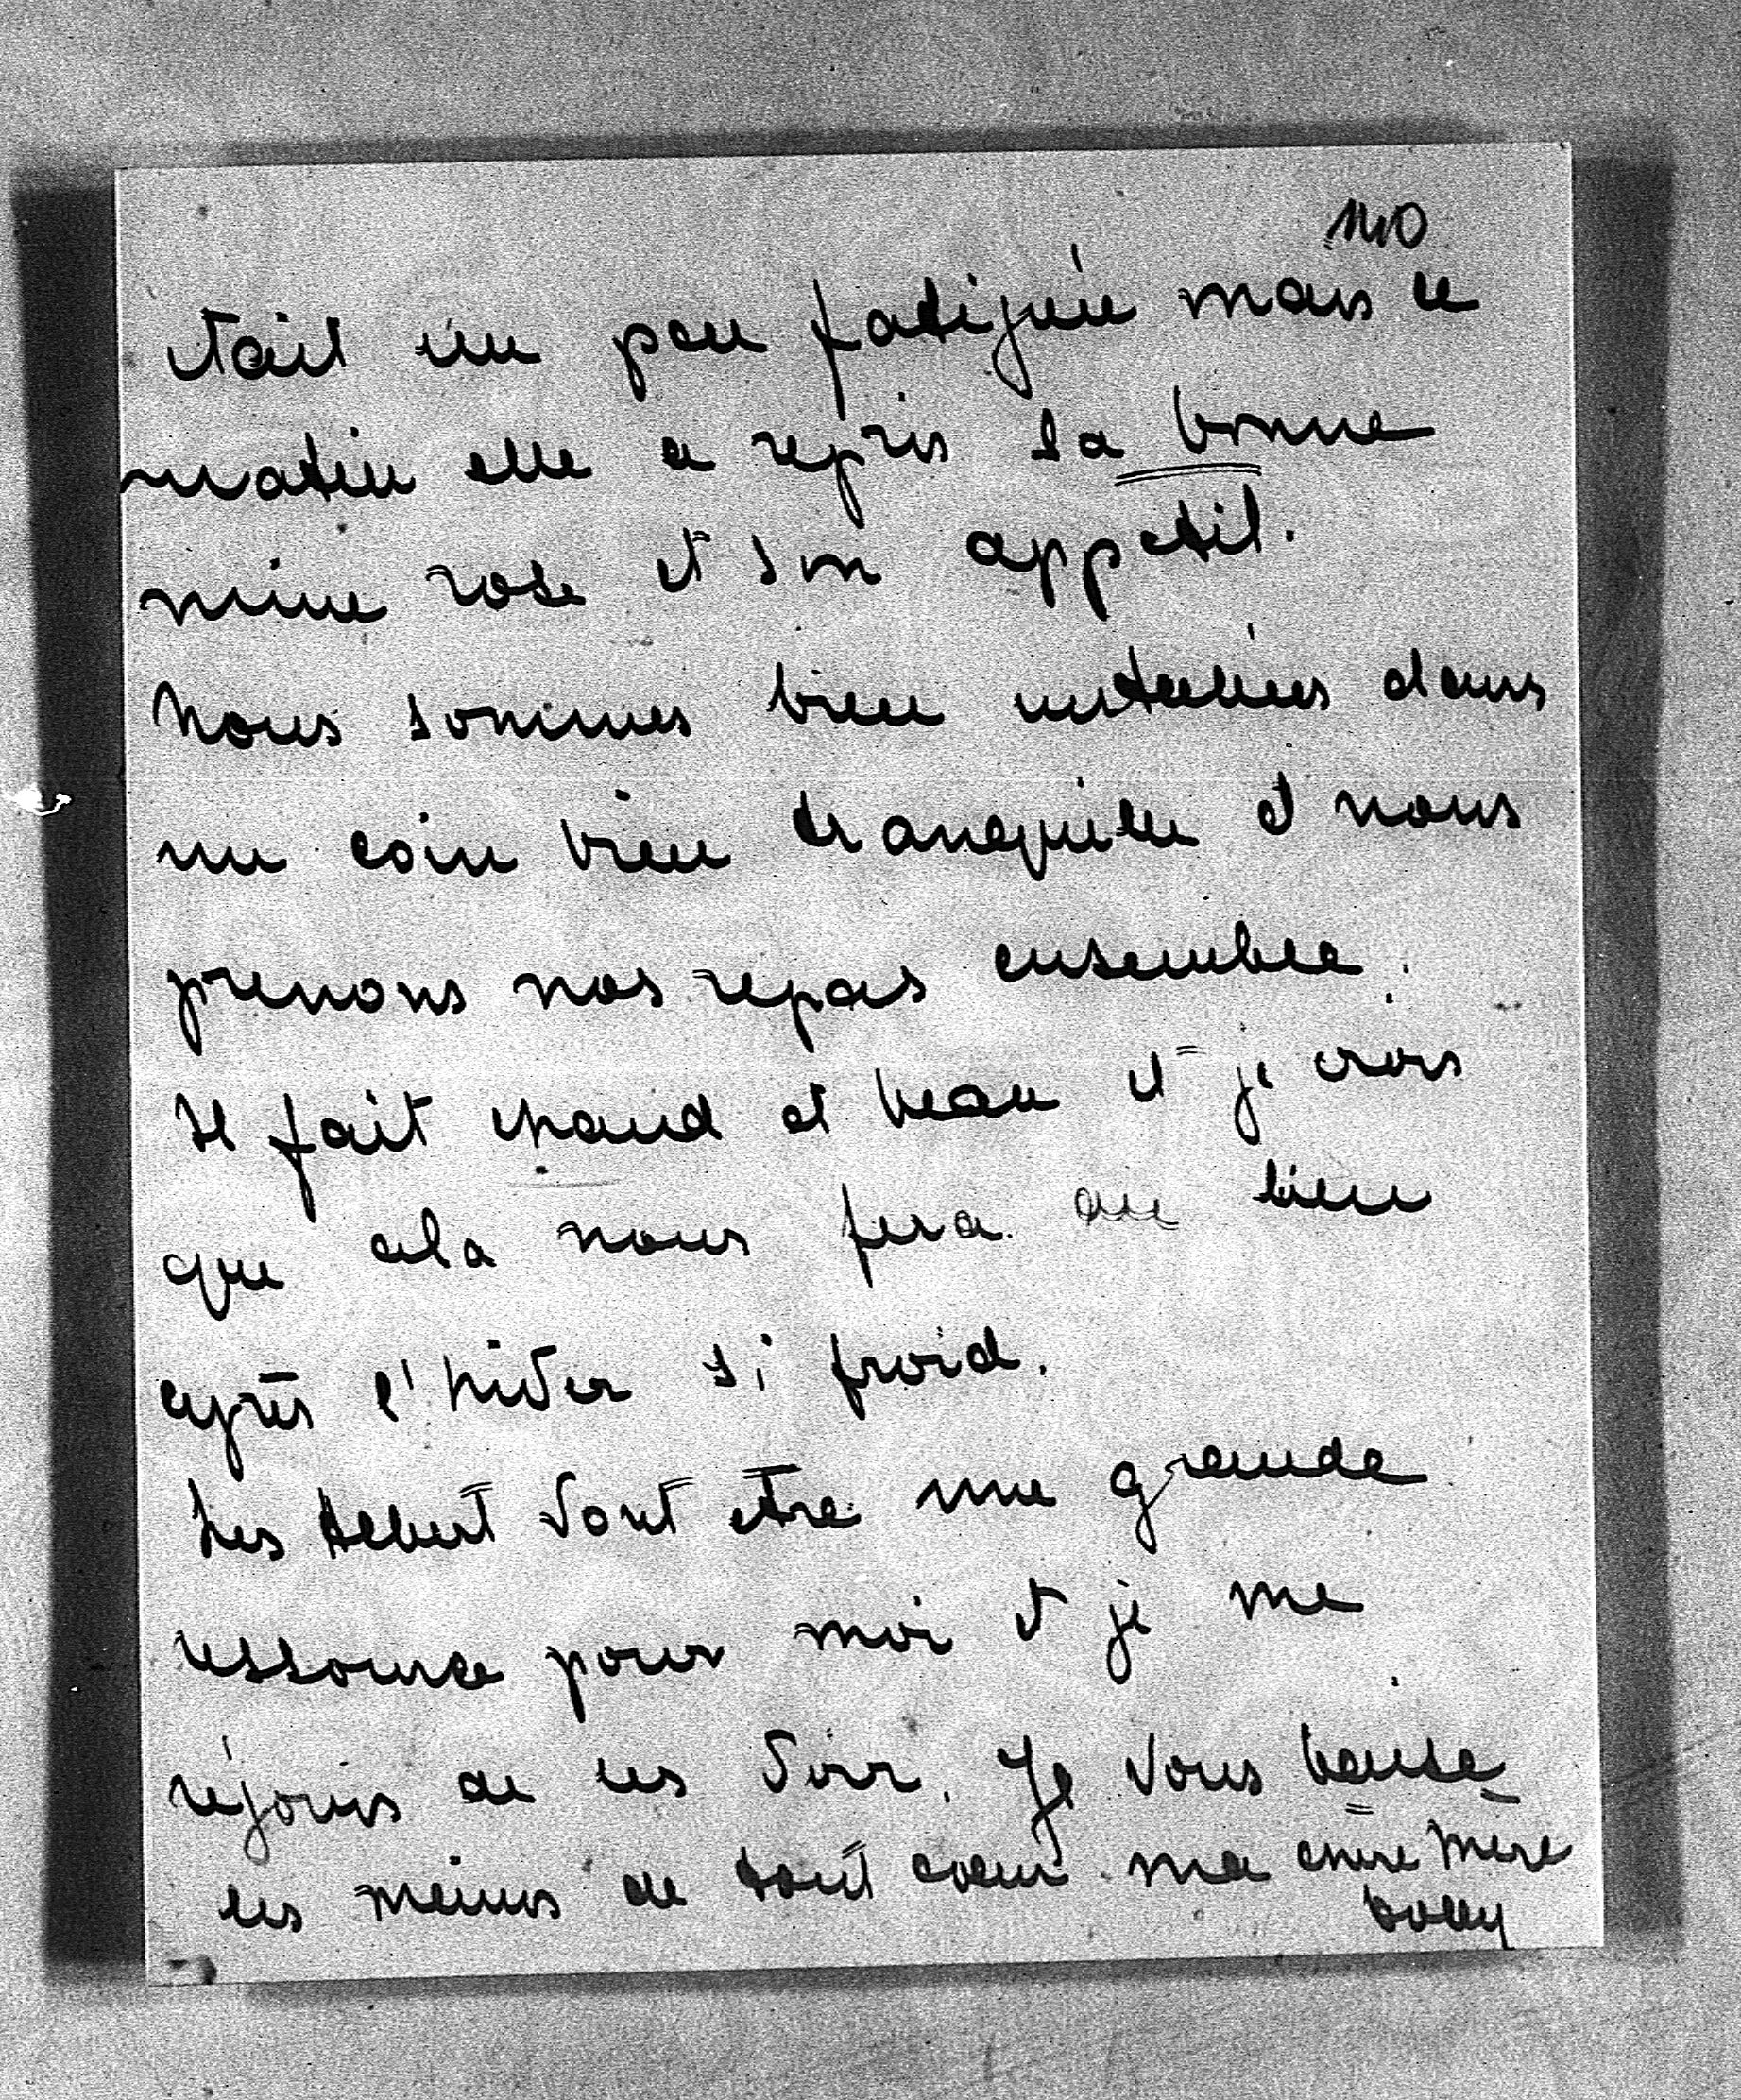 140
était un peu fatiguée mais ce
matin elle a repris sa bonne
mine rose et son appetit.
Nous sommes bien installées dans
un coin bien tranquille et nous
prenons nos repas ensemble.
Il fait chaud et beau et je crois
que cela nous fera du bien
après l'hiver si froid.
Les vont etre une grande
ressource pour moi et je me
réjouis de les voir. Je vous baise
les mains de tout coeur ma chère Mère
Dolly